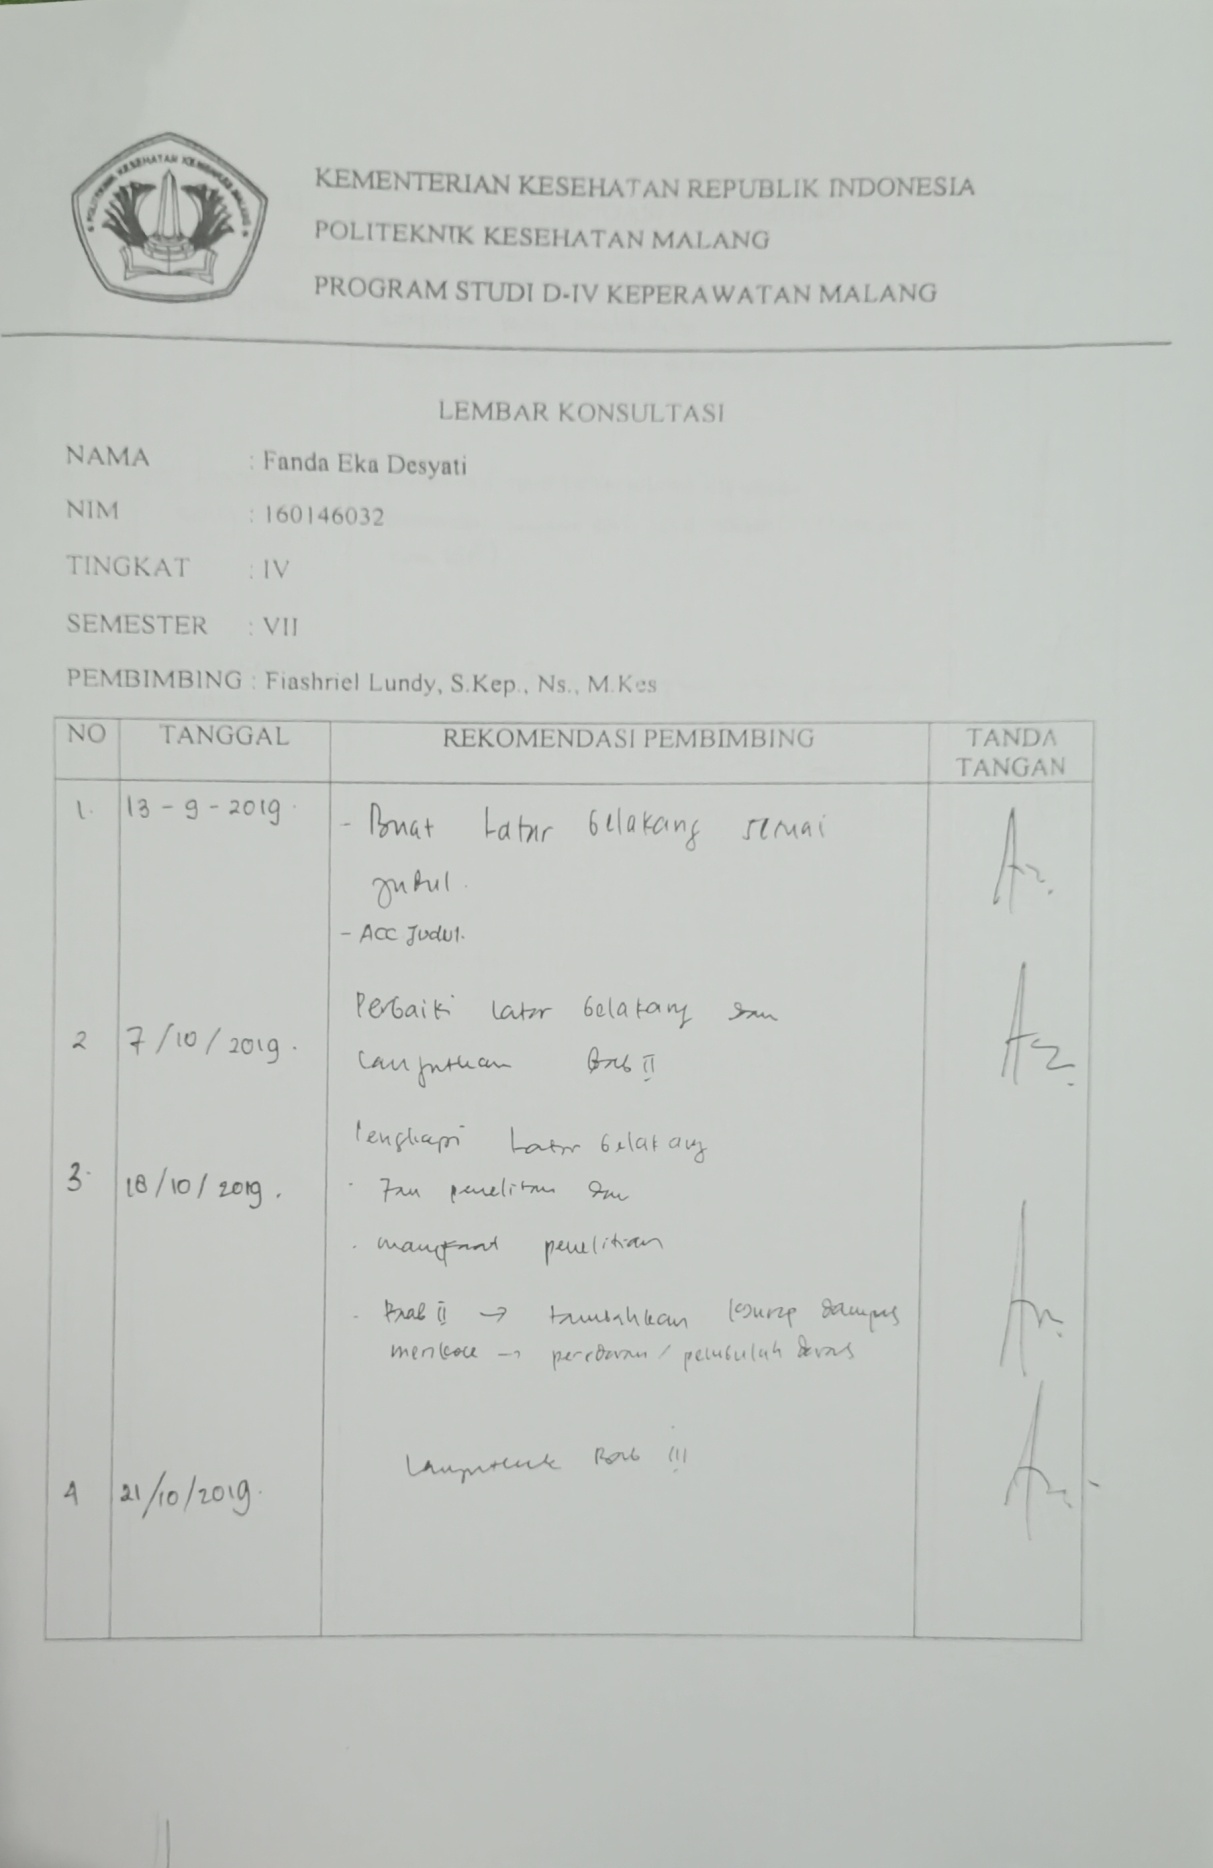 POLITEKNIK KESEHATAN KEMENKES MALANG
KEMENTERIAN KESEHATAN REPUBLIK INDONESIA
POLITEKNIK KESEHATAN MALANG
PROGRAM STUDI D-IV KEPERAWATAN MALANG
LEMBAR KONSULTASI
NAMA : Fanda Eka Desyati
NIM : 160146032
TINGKAT : IV
SEMESTER : VII
PEMBIMBING : Fiashriel Lundy, S.Kep., Ns., M.Kes
NO TANGGAL REKOMENDASI PEMBIMBING TANDA
TANGAN
1. 13 - 9 - 2019. - Buat Latar belakang sesuai
judul.
- Acc Judul.
Perbaiki latar belakang dan
2 7/10/2019. lanjutkan Bab II
lengkapi Latar belakang
3. 18/10/2019. · penelitian dan
· manfaat penelitian
· Bab II → tambahkan konsep
merokok → peredaran / pembuluh darah
Bab III
4 21/10/2019.